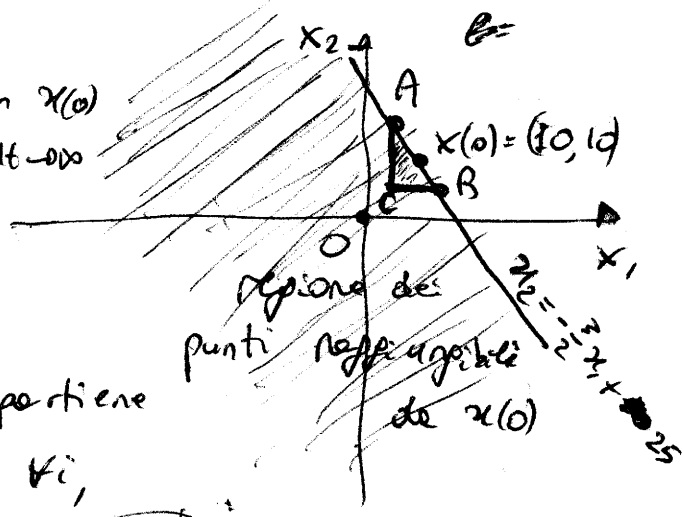 x₂
A
n x(0)
t→∞
x(0) = (10, 10)
C
B
O
x₁
regione dei
punti raggiungibili
da x(0)
x₂ = -3/2 x₁ + 25
partiene
∀i,